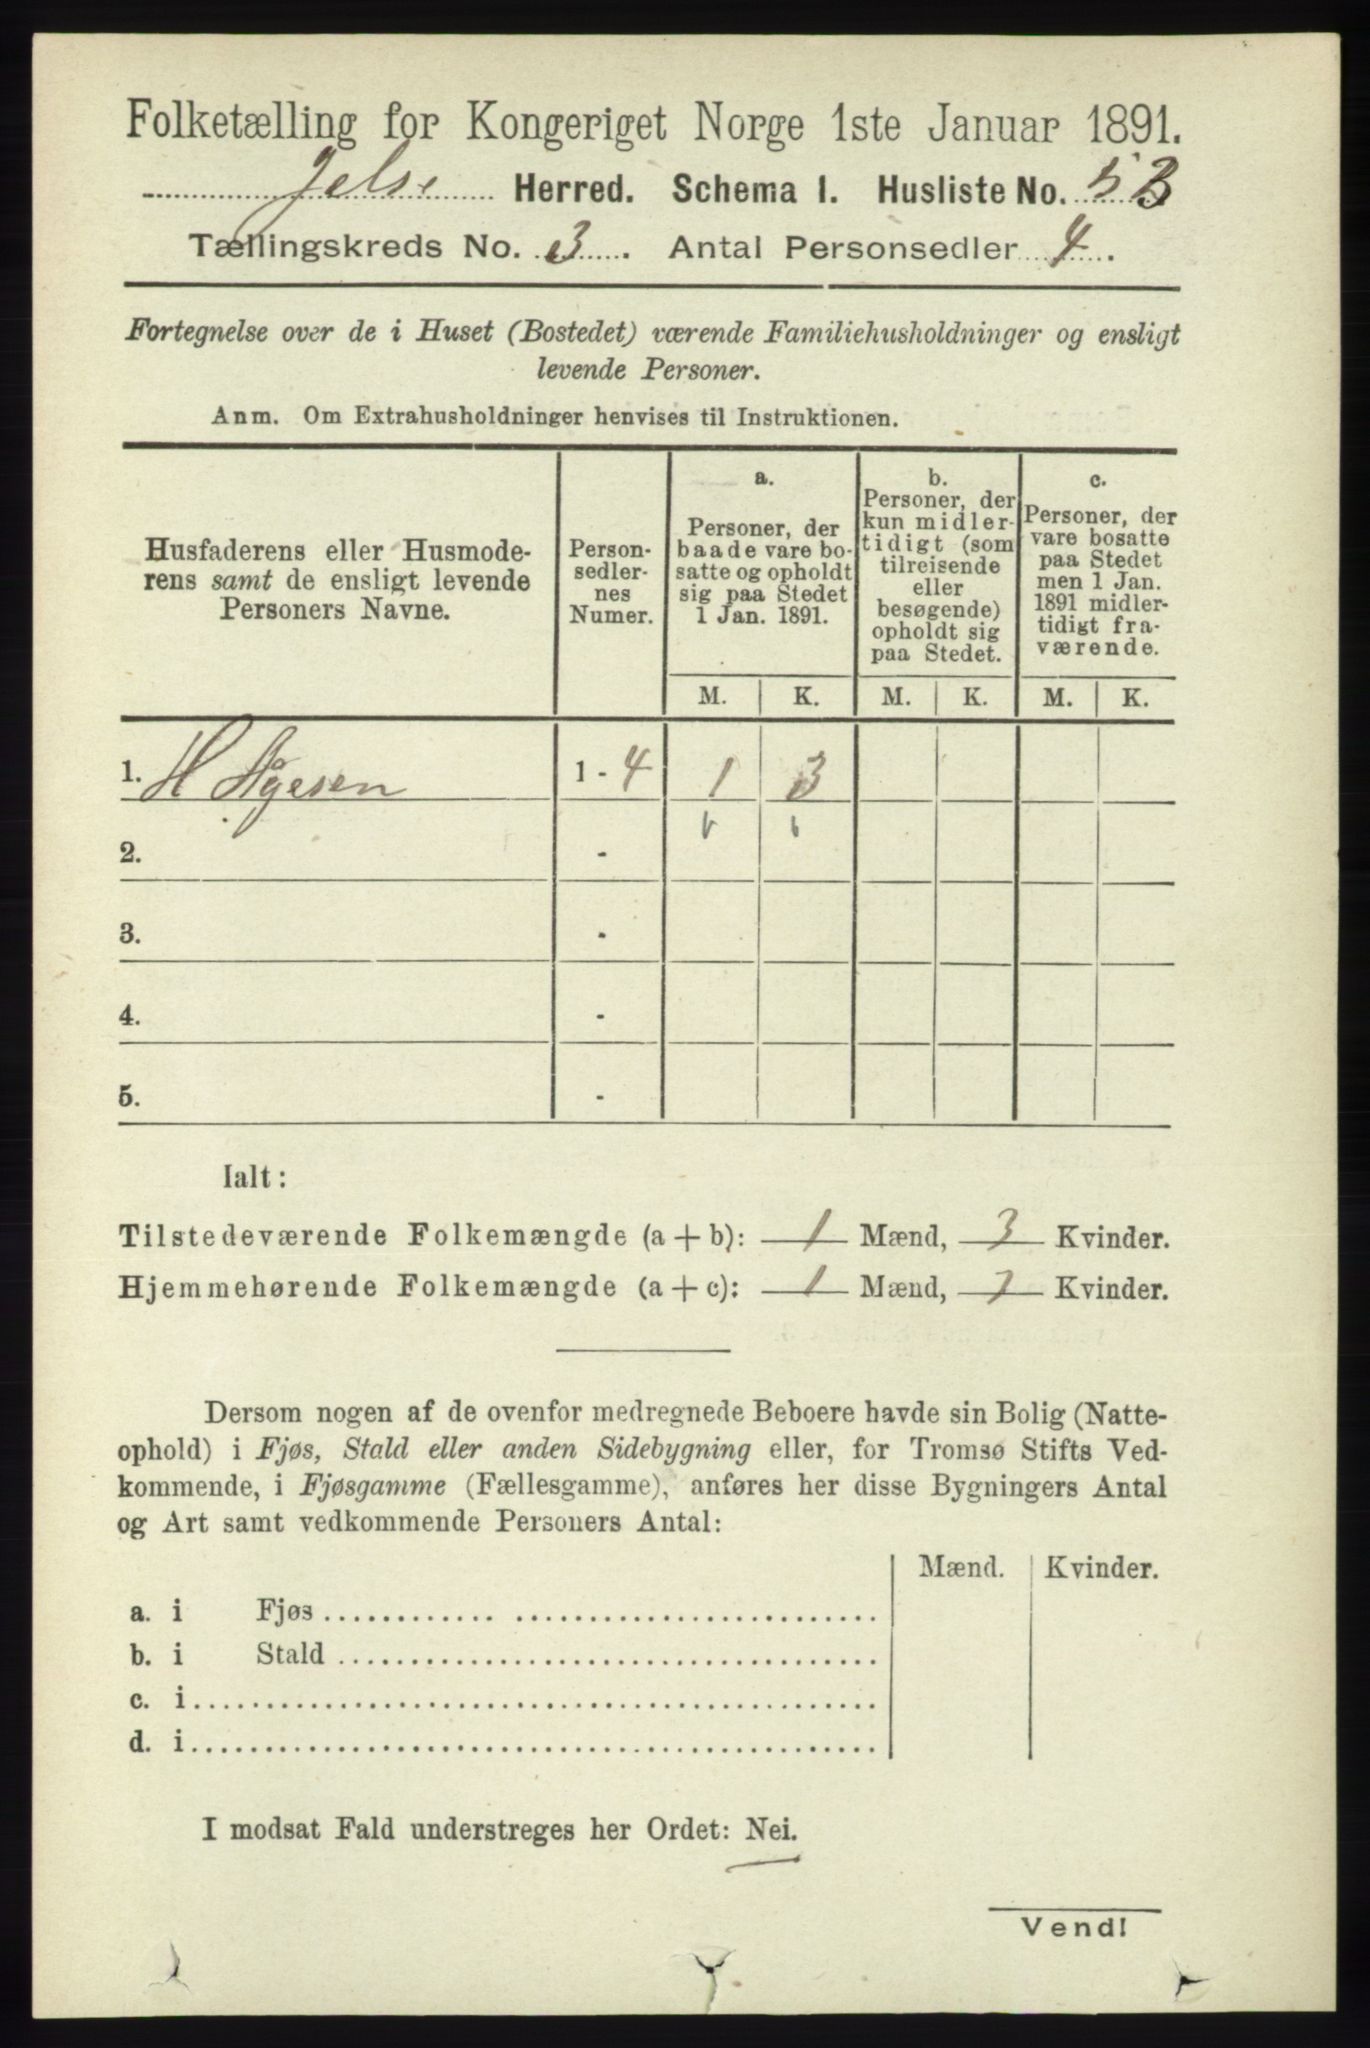 Folketælling for Kongeriget Norge 1ste Januar 1891.
Jelse Herred. Schema 1. Husliste No. 53
Tællingskreds No. 3. Antal Personsedler 4.
Fortegnelse over de i Huset (Bostedet) værende Familiehusholdninger og ensligt
levende Personer.
Anm. Om Extrahusholdninger henvises til Instruktionen.
Husfaderens eller Husmode-
rens samt de ensligt levende
Personers Navne.
Person-
sedler-
nes
Numer.
a.
Personer, der
baade vare bo-
satte og opholdt
sig paa Stedet
1 Jan. 1891.
b.
Personer, der
kun midler-
tidigt (som
tilreisende
eller
besøgende)
opholdt sig
paa Stedet.
c.
Personer, der
vare bosatte
paa Stedet
men 1 Jan.
1891 midler-
tidigt fra-
værende.
M. K. M. K. M. K.
1. H Ågesen 1 - 4 1 3
2. -
3. -
4. -
5. -
Ialt:
Tilstedeværende Folkemængde (a + b): 1 Mænd, 3 Kvinder.
Hjemmehørende Folkemængde (a + c): 1 Mænd, Kvinder.
Dersom nogen af de ovenfor medregnede Beboere havde sin Bolig (Natte-
ophold) i Fjøs, Stald eller anden Sidebygning eller, for Tromsø Stifts Ved-
kommende, i Fjøsgamme (Fællesgamme), anføres her disse Bygningers Antal
og Art samt vedkommende Personers Antal:
Mænd. Kvinder.
a. i Fjøs
b. i Stald
c. i
d. i
I modsat Fald understreges her Ordet: Nei.
Vend!